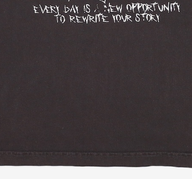 EVERY DAY IS A NEW OPPORTUNITY
TO REWRITE YOUR STORY